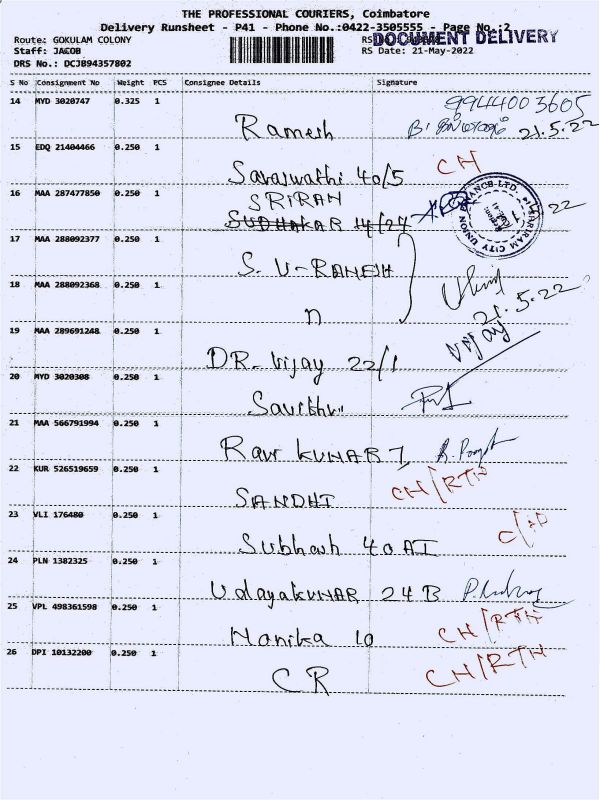 THE PROFESSIONAL COURIERS, Coimbatore
Delivery Runsheet - P41 - Phone No.:0422-3505555 - Page No.:2
Route: GOKULAM COLONY
DOCUMENT DELIVERY
Staff: JACOB
RS Date: 21-May-2022
DRS No.: DCJ894357802
S No Consignment No Weight PCS Consignee Details Signature
14 MYD 3020747 0.325 1
9944003605
Ramesh
21.5.22
15 EDQ 21404466 0.250 1
CH
Saraswathi 40/5
16 MAA 287477850 0.250 1
SRIRAM
SUDHAKAR 14/27
22
17 MAA 288092377 0.250 1
S. U-RAMESH
18 MAA 288092368 0.250 1
21.5.22
19 MAA 289691248 0.250 1
Vijay
DR. Vijay 22/1
20 MYD 3020308 0.250 1
Savithri
21 MAA 566791994 0.250 1
Ravi KUMAR
22 KUR 526519659 0.250 1
CH/RTN
SANDHI
23 VLI 176480 0.250 1
Subhash 40 AI
24 PLN 1382325 0.250 1
UdayaKUMAR 24 B
25 VPL 498361598 0.250 1
CH/RTN
Monika 10
26 DPI 10132200 0.250 1
CH/RTN
CR